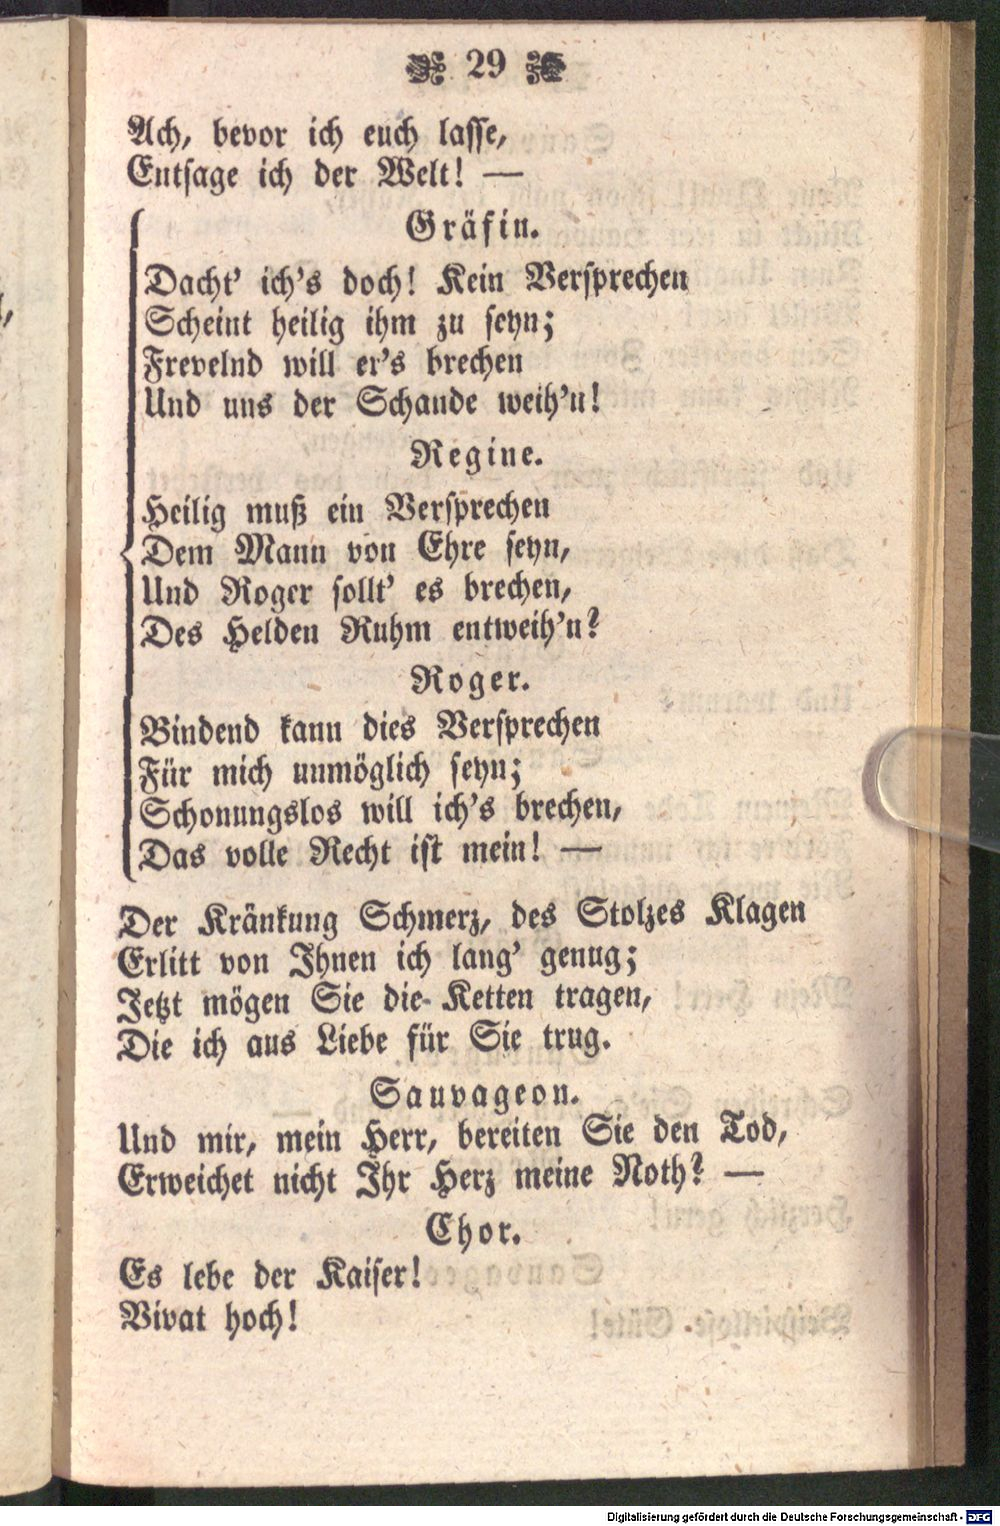 29
Ach, bevor ich euch lasse,
Entsage ich der Welt! —
Gräfin.
Dacht' ich's doch! Kein Versprechen
Scheint heilig ihm zu seyn;
Frevelnd will er's brechen
Und uns der Schande weih'n!
Regine.
Heilig muß ein Versprechen
Dem Mann von Ehre seyn,
Und Roger sollt' es brechen,
Des Helden Ruhm entweih'n?
Roger.
Bindend kann dies Versprechen
Für mich unmöglich seyn;
Schonungslos will ich's brechen,
Das volle Recht ist mein! —
Der Kränkung Schmerz, des Stolzes Klagen
Erlitt von Ihnen ich lang' genug;
Jetzt mögen Sie die Ketten tragen,
Die ich aus Liebe für Sie trug.
Sauvageon.
Und mir, mein Herr, bereiten Sie den Tod,
Erweichet nicht Ihr Herz meine Noth? —
Chor.
Es lebe der Kaiser!
Vivat hoch!
Digitalisierung gefördert durch die Deutsche Forschungsgemeinschaft - DFG